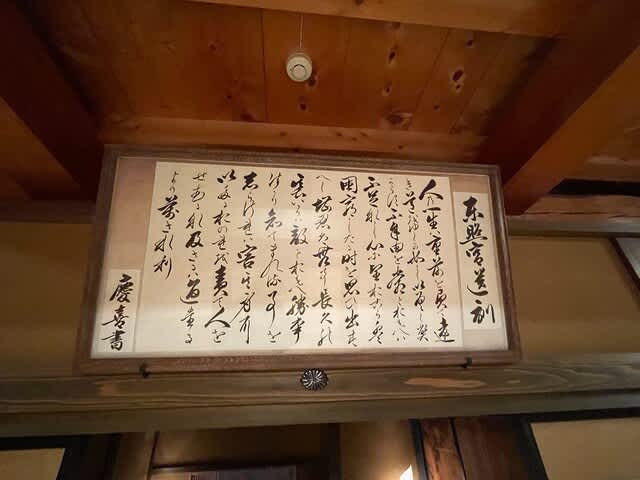 東照宮遺訓
人の一生は重荷を負て遠
き道をゆくかことし
らす不自由を常とおもへは
不足なし心に望おこらは
困窮したる時を思ひ出す
へし堪忍は無事長久の
いかりは敵とおもへ勝事
はかり知てまくる事を
しらされは害其身に
いたるおのれを責て人を
せむるな及さるは過たる
よりまされり
慶喜書